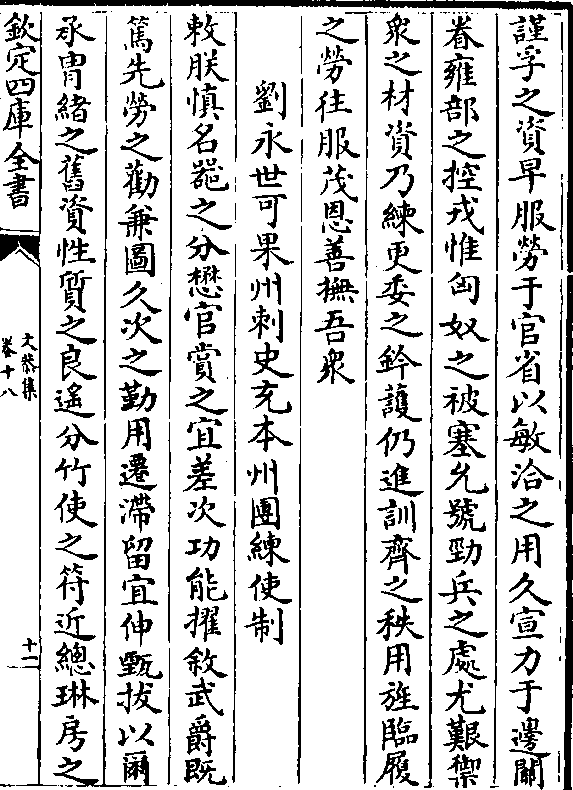 謹孚之資早服勞于官省以敏洽之用久宣力于邊關
眷雍部之控戎惟匈奴之被塞允號勁兵之處尤艱禦
衆之材資乃練更委之鈐護仍進訓齊之秩用旌臨履
之勞往服茂恩善撫吾衆
劉永世可果州刺史充本州團練使制
敕朕慎名器之分懋官賞之宜差次功能擢敘武爵既
篤先勞之勸兼圖久次之勤用遷滯留宜伸甄拔以爾
承胄緒之舊資性質之良遙分竹使之符近總琳房之
欽定四庫全書
文恭集
卷十八
十二